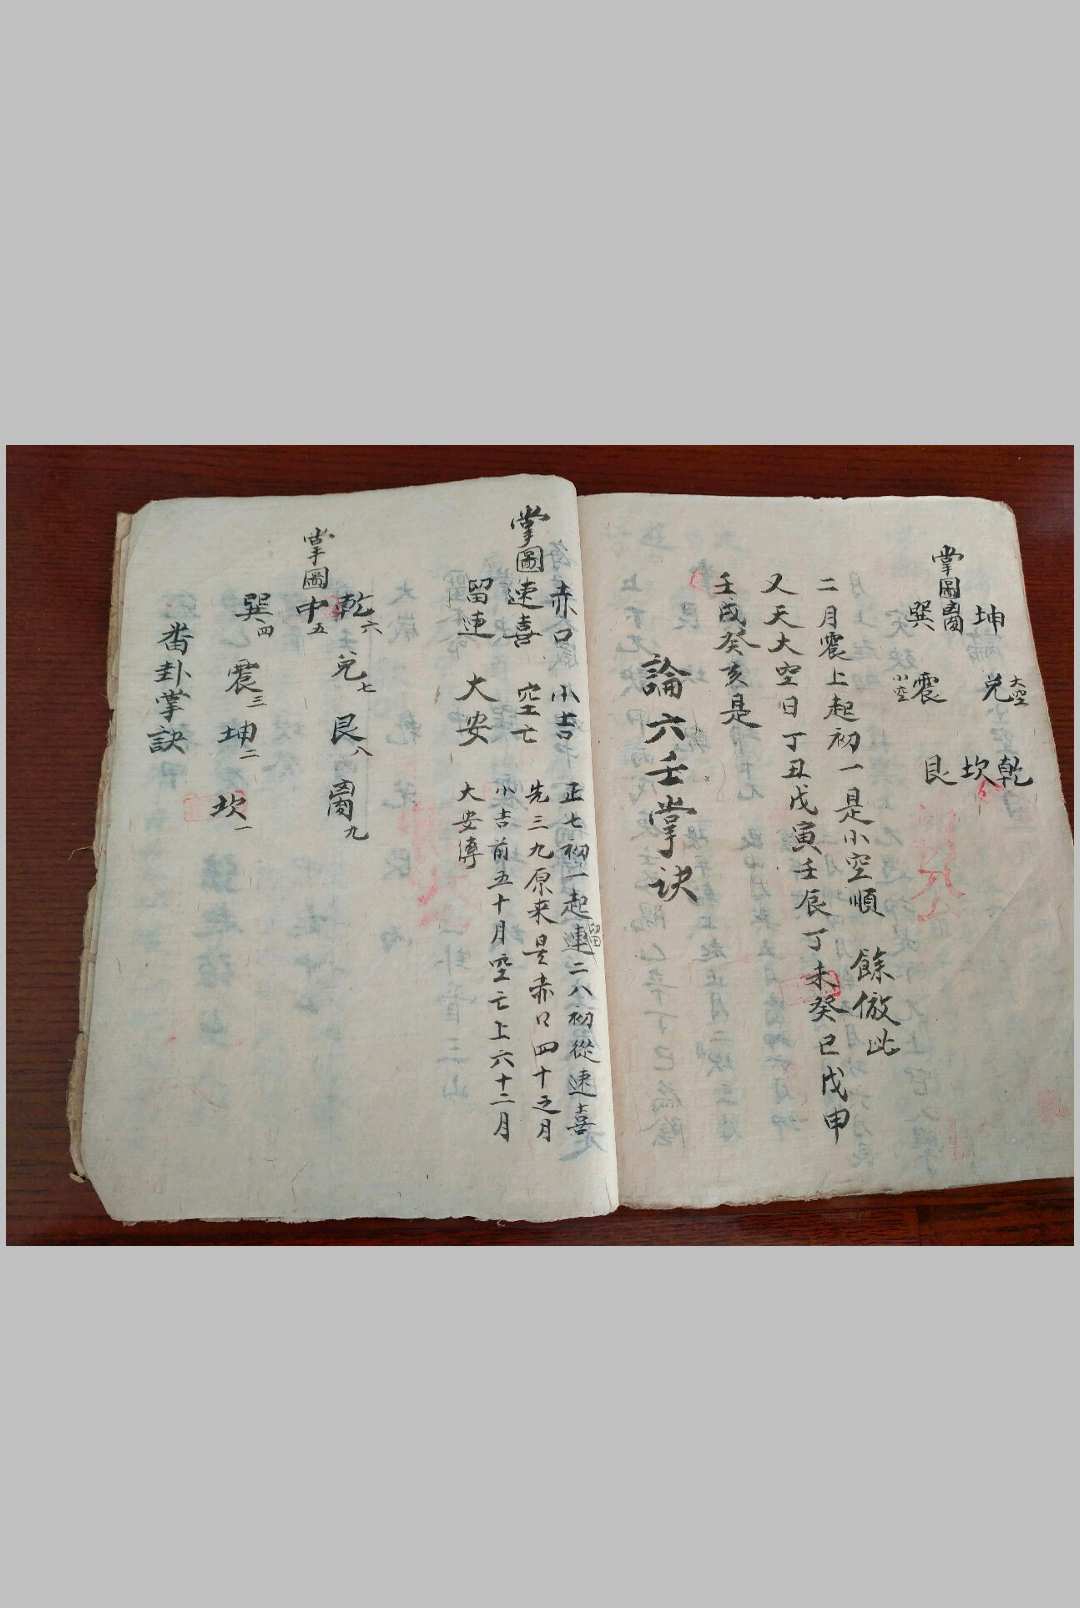 掌圖
坤 兌大空 乾
坎
巽 震小空 艮
二月震上起初一是小空順 餘倣此
又天大空日丁丑戊寅壬辰丁未癸巳戊申
壬戌癸亥是
論六壬掌訣
掌圖
赤口 小吉
速喜 空亡
留連 大安
正七初一起留連二八初從速喜
先三九原来是赤口四十之月
小吉前五十月空亡上六十二月
大安傳
掌圖
乾六 兌七 艮八 九
中五
巽四 震三 坤二 坎一
番卦掌訣